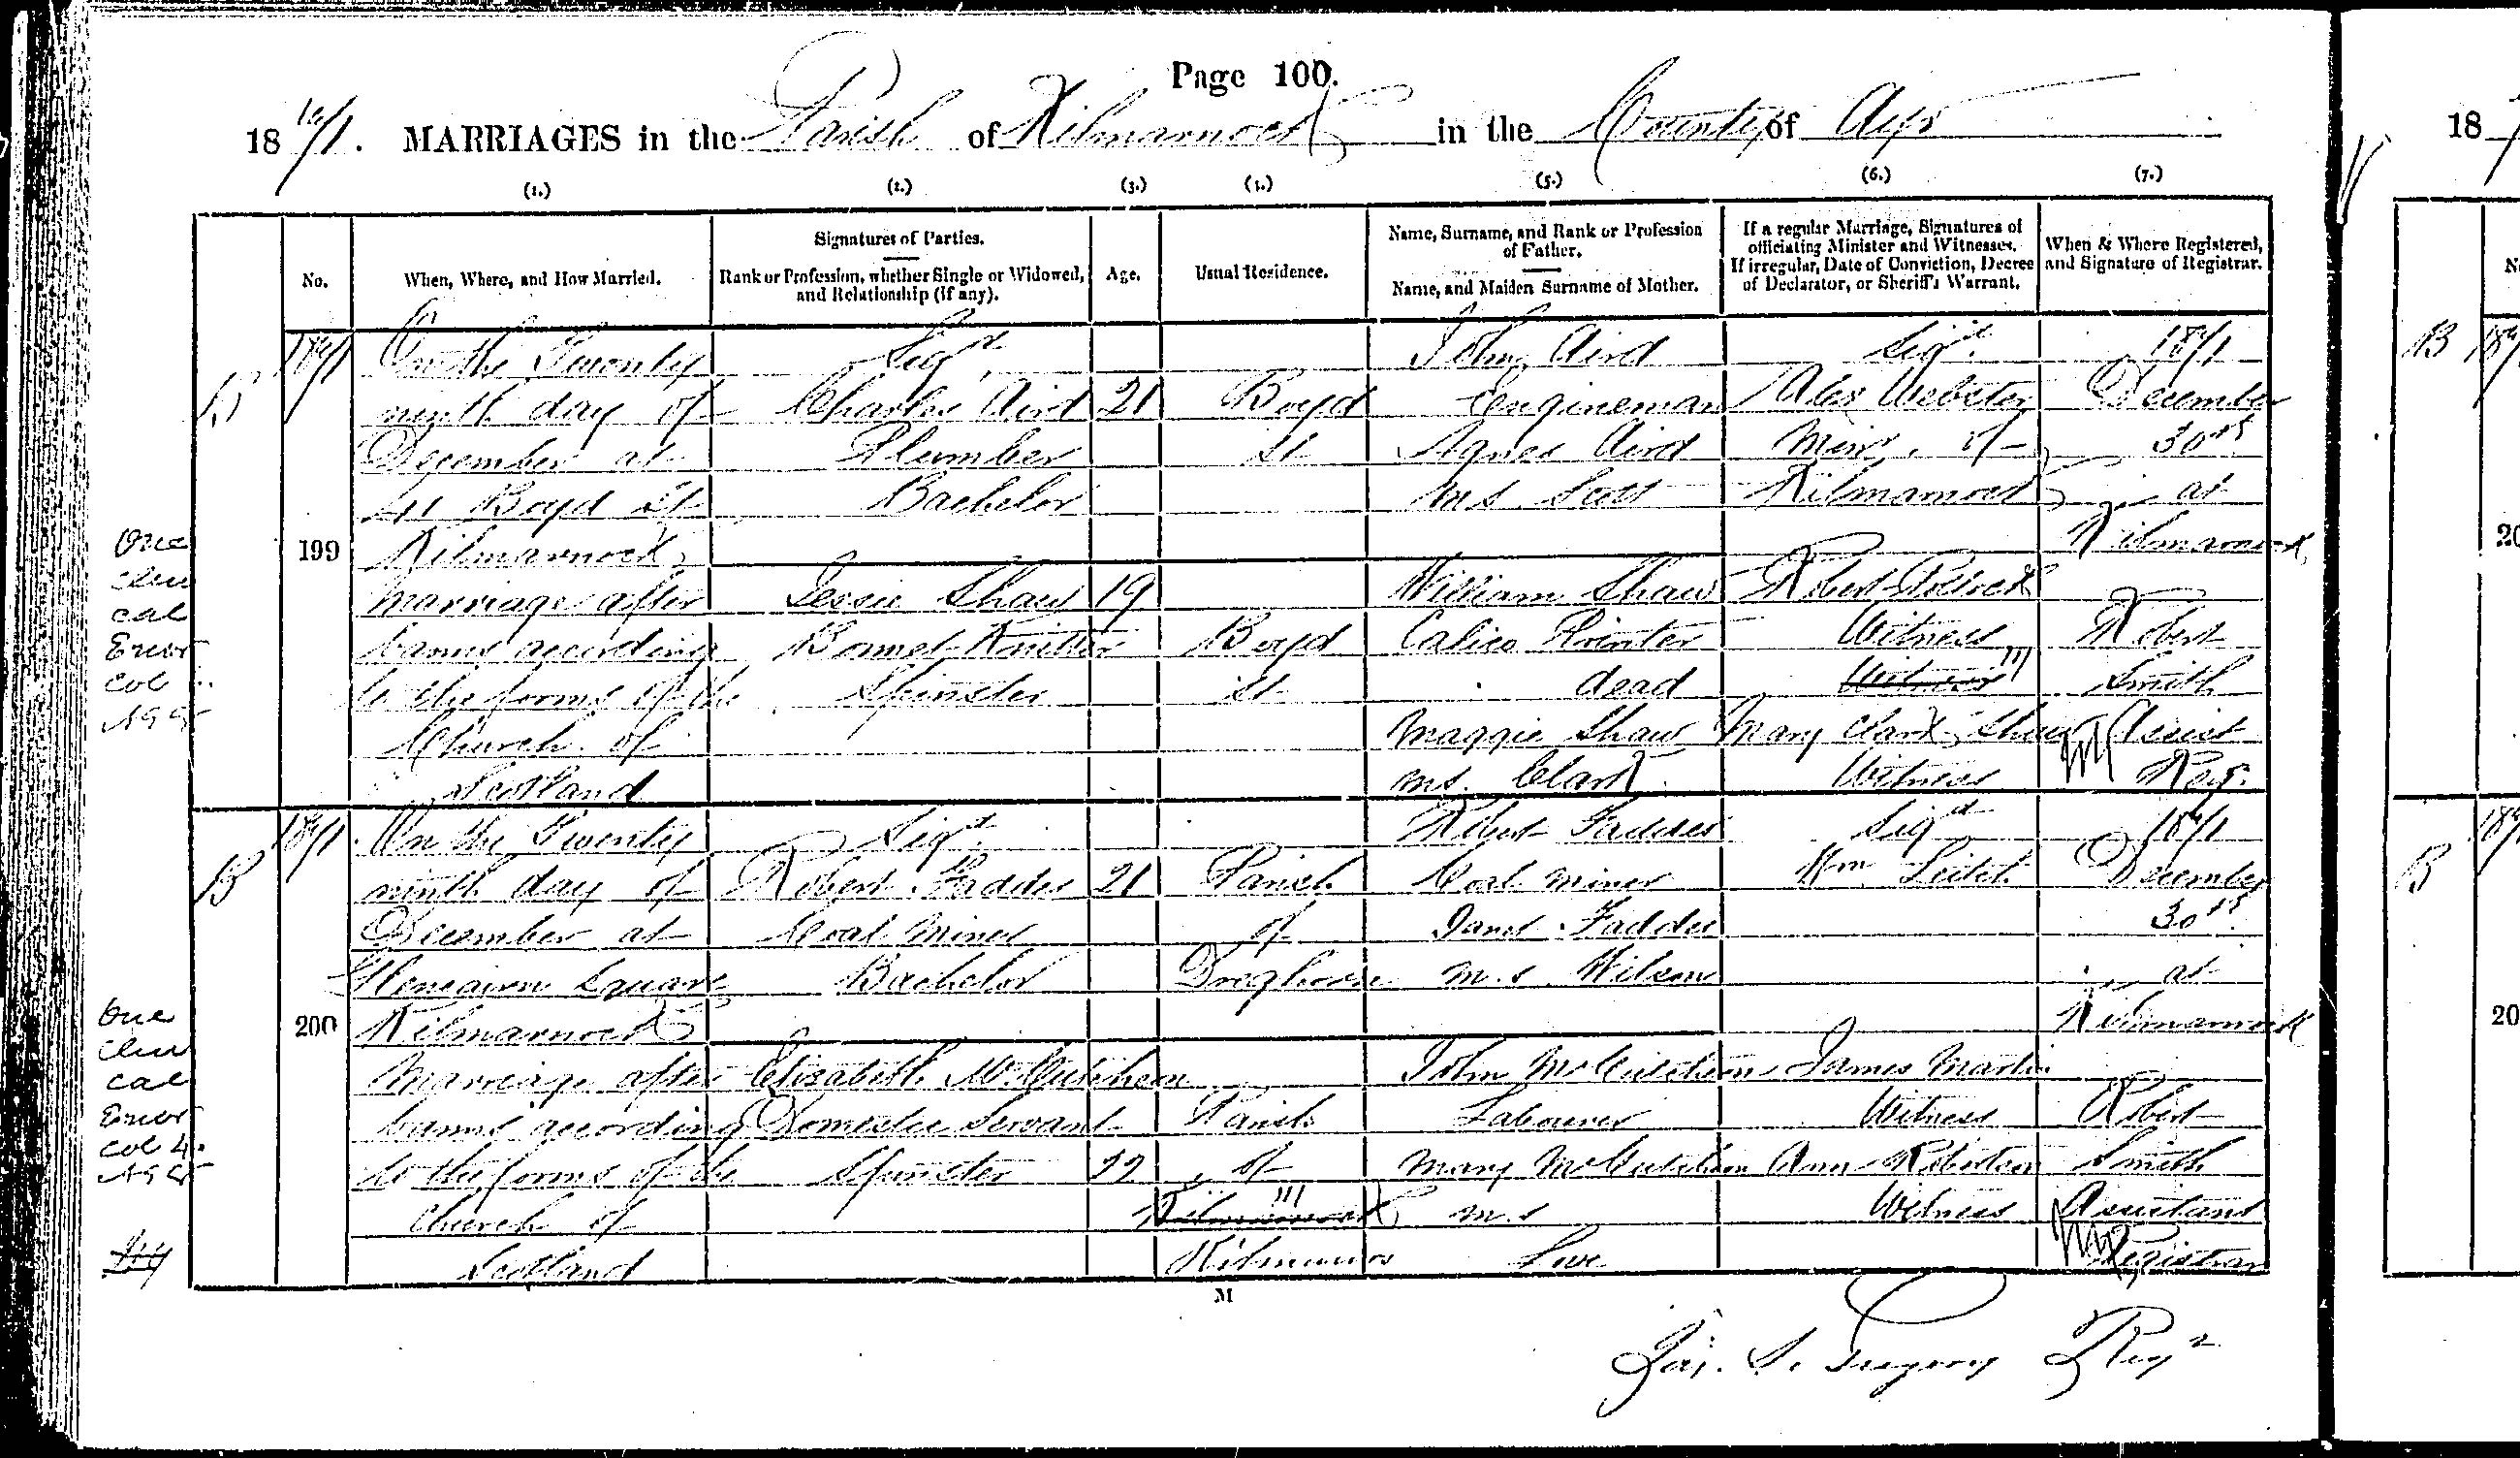 Page 100.
1871. MARRIAGES in the Parish of Kilmarnock in the County of Ayr
18
(1.) (2.) (3.) (4.) (5.) (6.) (7.)
No.
When, Where, and How Married.
Signatures of Parties.
Rank or Profession, whether Single or Widowed,
and Relationship (if any).
Age.
Usual Residence.
Name, Surname, and Rank or Profession
of Father.
Name, and Maiden Surname of Mother.
If a regular Marriage, Signatures of
officiating Minister and Witnesses.
If irregular, Date of Conviction, Decree
of Declarator, or Sheriff's Warrant.
When & Where Registered,
and Signature of Registrar.
B
1871
199
On the Twenty
ninth day of
December at
41 Boyd St
Kilmarnock
Marriage after
banns according
to the forms of the
Church of
Scotland
Sigd.
Charles Aird
Plumber
Bachelor
Jessie Shaw
Bonnet Knitter
Spinster
21
19
Boyd
St
Boyd
St
John Aird
Engineman
Agnes Aird
M S Scott
William Shaw
Calico Printer
dead
Maggie Shaw
M.S. Clark
Sigd.
Alex Webster
Minr. of
Kilmarnock
Robert Pollock
Witness
Witness
Mary Clark Shaw
Witness
1871
December
30th
at
Kilmarnock
Robert
Smith
Assist
Regr.
One
Cleri
cal
Error
Col
B
1871
200
On the Twenty
ninth day of
December at
Square
Kilmarnock
Marriage after
banns according
to the forms of the
Church of
Scotland
Sigd.
Robert Faddes
Coal Miner
Bachelor
Elizabeth McCutcheon
Domestic Servant
Spinster
21
22
Parish
of
Dreghorn
Parish
of
Kilmarnock
Kilmaurs
Robert Faddes
Coal Miner
Janet Faddes
M.S. Wilson
John McCutcheon
Labourer
Mary McCutcheon
M.S
Love
Sigd
Wm Leitch
James Martin
Witness
Ann Robertson
Witness
1871
December
30th.
at
Kilmarnock
Robert
Smith
Assistant
Registrar
One
Cleri
cal
Error
Col 4.
M
Jas. S. Gregory Regr
B
B